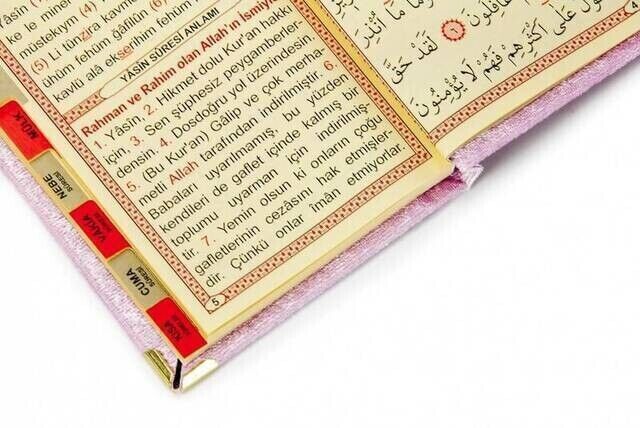 ke le minel
müstekıym (4)
(5) Li tünzira kavmen
ühüm fehüm ğafilûn (6)
kavlü alâ ekserihim fehüm
YÂSÎN SÛRESİ ANLAMI
Rahman ve Rahim olan Allah'ın İsmiyle
1. Yâsîn. 2. Hikmet dolu Kur'an hakkı
için, 3. Sen şüphesiz peygamberler-
densin. 4. Dosdoğru yol üzerindesin.
5. (Bu Kur'an) Gâlip ve çok merha-
metli Allah tarafından indirilmiştir. 6.
Babaları uyarılmamış, bu yüzden
kendileri de gaflet içinde kalmış bir
toplumu uyarman için indirilmiş-
tir. 7. Yemin olsun ki onların çoğu
gafletlerinin cezasını hak etmişler-
dir. Çünkü onlar îmân etmiyorlar.
5
مَا أُنْذِرَ
غَافِلُونَ ٦ لَقَدْ حَقَّ
الْقَوْلُ عَلَى أَكْثَرِهِمْ فَهُمْ لَا يُؤْمِنُونَ
MÜLK
NEBE
SÛRESİ
VÂKIA
SÛRESİ
CUMA
SÛRESİ
KISA
SÛRELER